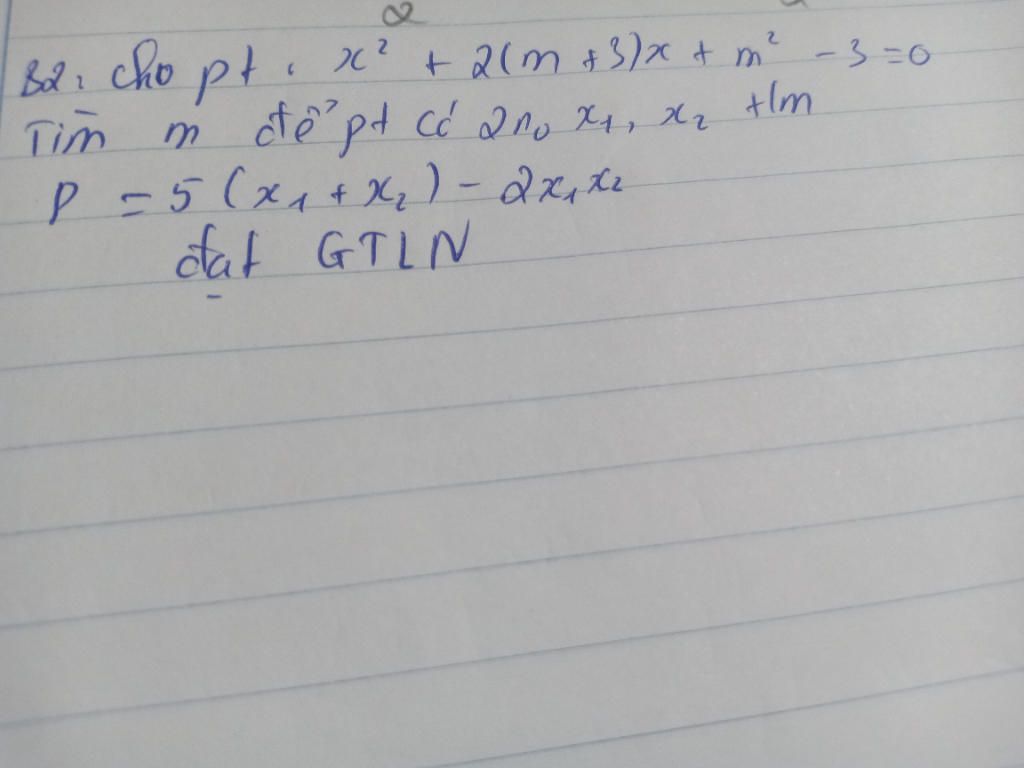 2
B2: Cho pt: x² + 2(m+3)x + m² - 3 = 0
Tìm m để pt có 2no x₁, x₂ t/m
P = 5(x₁ + x₂) - 2x₁x₂
đạt GTLN